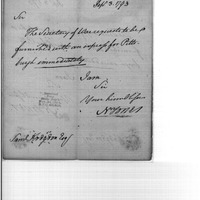 Sept 3. 1793
Sir
The Secretary of War requests to be
furnished with an express for Pitts-
burgh immediately.
I am
Sir
Your humble
Saml Hodgdon Esqr